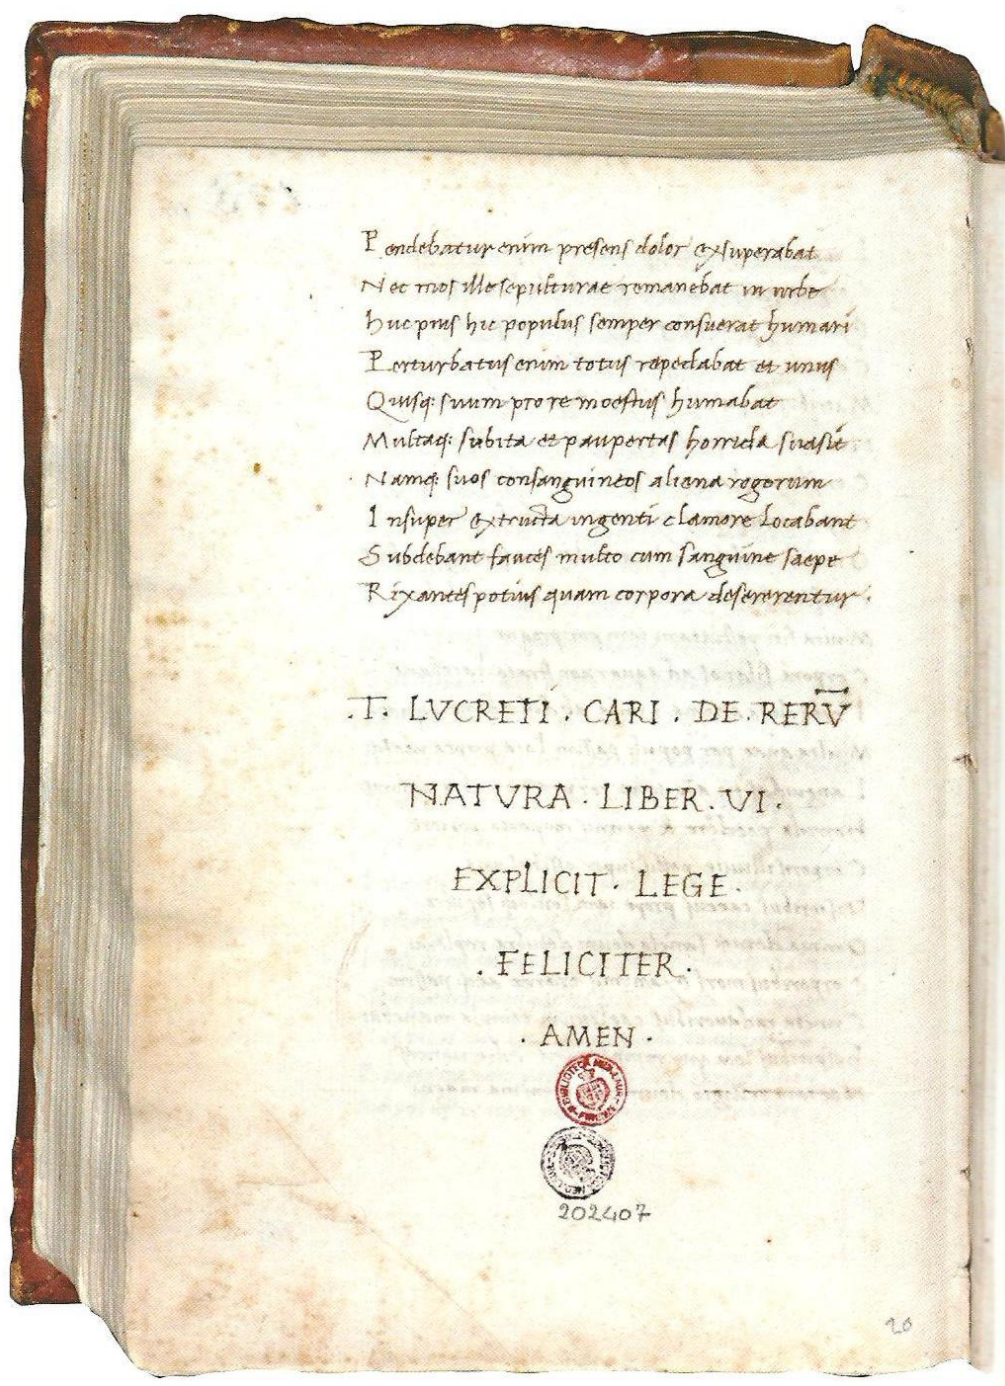 Pendebatur enim presens dolor exsuperabat
Nec mos ille sepulturae remanebat in urbe
Huc pius hic populus semper consuerat humari
Perturbatus enim totus repedabat et unus
Quisq: suum pro re moestus humabat
Multaq: subita et paupertas horrida suasit
Namq: suos consanguineos aliena rogorum
Insuper extructa ingenti clamore locabant
Subdebant fauces multo cum sanguine saepe
Rixantes potius quam corpora desererentur.
.T. LVCRETI . CARI . DE . RERV̅
NATVRA . LIBER . VI .
EXPLICIT . LEGE .
. FELICITER .
. AMEN .
202407
20